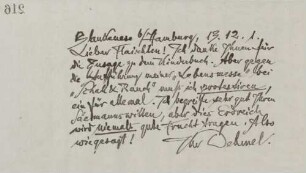 216
Blankenese b/Hamburg, 13.12.1.
Lieber Flaischlen! Ich danke Ihnen für
die Zusage zu dem Kinderbuch. Aber gegen
die Aufführung meiner „Lebensmesse" bei
„Schall & Rauch" muß ich protestieren,
ein für allemal. Ich begreife sehr gut Ihren
wollen, aber dies Erdreich
wird niemals gute Frucht tragen. Also
wiegesagt!
Ihr Dehmel.